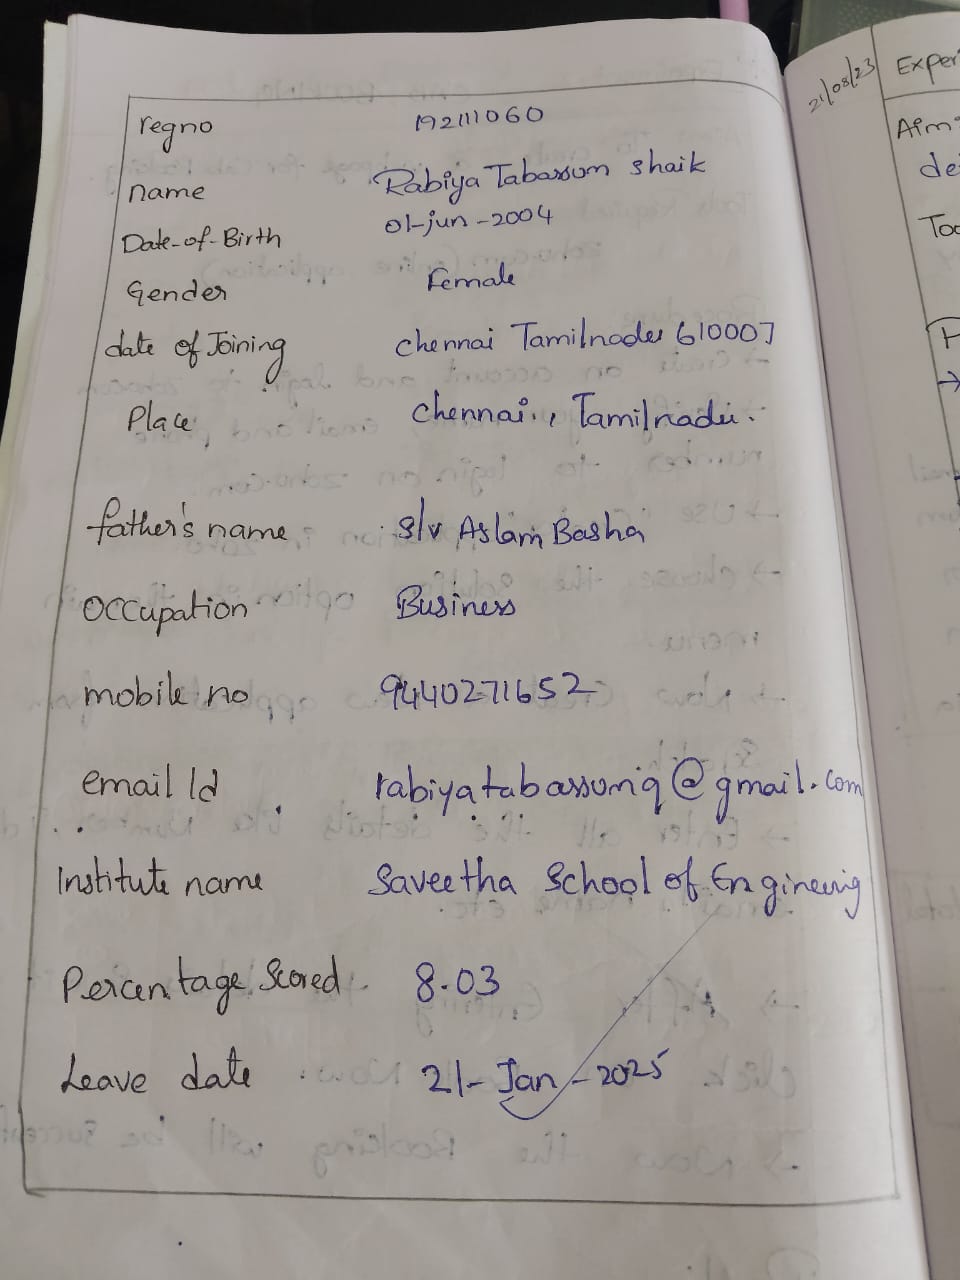 regno 192111060
name Rabiya Tabassum shaik
Date-of-Birth 01-jun-2004
Gender Female
date of Joining chennai Tamilnadu 610007
Place chennai, Tamilnadu.
father's name s/v Aslam Basha
occupation Business
mobile no 9440271652
email Id rabiyatabassumiq@gmail.com
Institute name Saveetha School of Engineerig
Percentage Scored 8.03
Leave date 21-Jan-2025
21/08/23
Exper
Aim:
de
Too